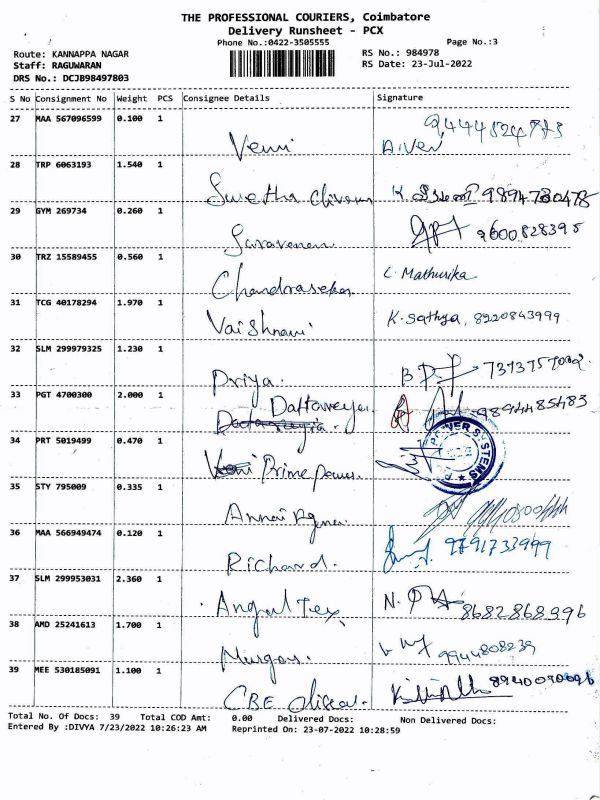 THE PROFESSIONAL COURIERS, Coimbatore
Delivery Runsheet - PCX
Phone No.:0422-3505555
Page No.:3
Route: KANNAPPA NAGAR
RS No.: 984978
Staff: RAGUWARAN
RS Date: 23-Jul-2022
DRS No.: DCJB98497803
S No Consignment No Weight PCS Consignee Details Signature
27 MAA 567096599 0.100 1
Venni
28 TRP 6063193 1.540 1
Swetha K. 9894730478
29 GYM 269734 0.260 1
Saravanan 9600828395
30 TRZ 15589455 0.560 1
Chandrasekar C. Mathurika
31 TCG 40178294 1.970 1
Vaishnavi K. Sathya, 8220843999
32 SLM 299979325 1.230 1
Priya.
33 PGT 4700300 2.000 1
Dattatreya. 9894485483
34 PRT 5019499 0.470 1
Prime Power POWER SYSTEMS
35 STY 795009 0.335 1
Annai
36 MAA 566949474 0.120 1
Richard. 9791733999
37 SLM 299953031 2.360 1
Angul Tex N. 8682868996
38 AMD 25241613 1.700 1
Murgan. 9944808239
39 MEE 530185091 1.100 1
CBE
Total No. Of Docs: 39 Total COD Amt: 0.00 Delivered Docs: Non Delivered Docs:
Entered By :DIVYA 7/23/2022 10:26:23 AM Reprinted On: 23-07-2022 10:28:59